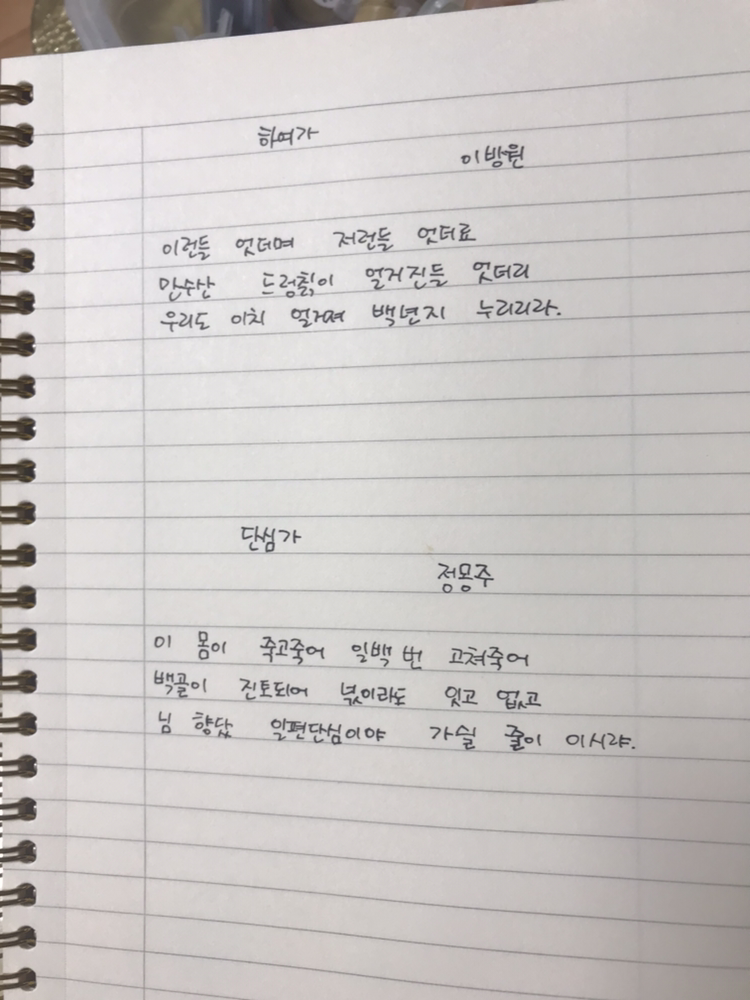 하여가
이방원
이런들 엇더며 저런들 엇더료
만수산 드렁칡이 얼거진들 엇더리
우리도 이치 얼거져 백년지 누리리라.
단심가
정몽주
이 몸이 죽고죽어 일백 번 고쳐죽어
백골이 진토되어 넋이라도 잇고 업고
님 향닶 일편단심이야 가싈 줄이 이시랴.